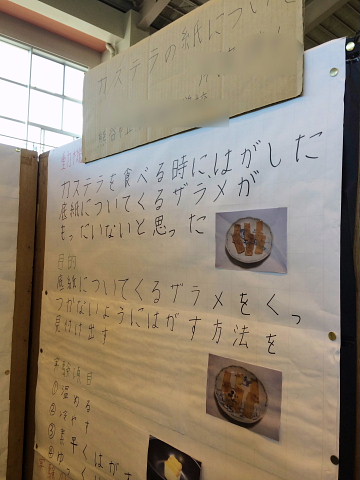 カステラの紙について
カステラを食べる時に、はがした
底紙についてくるザラメが
もったいないと思った
目的
底紙についてくるザラメをくっ
つかないようにはがす方法を
見付け出す
実験項目
①温める
②冷やす
③素早くはがす
④ゆっくり